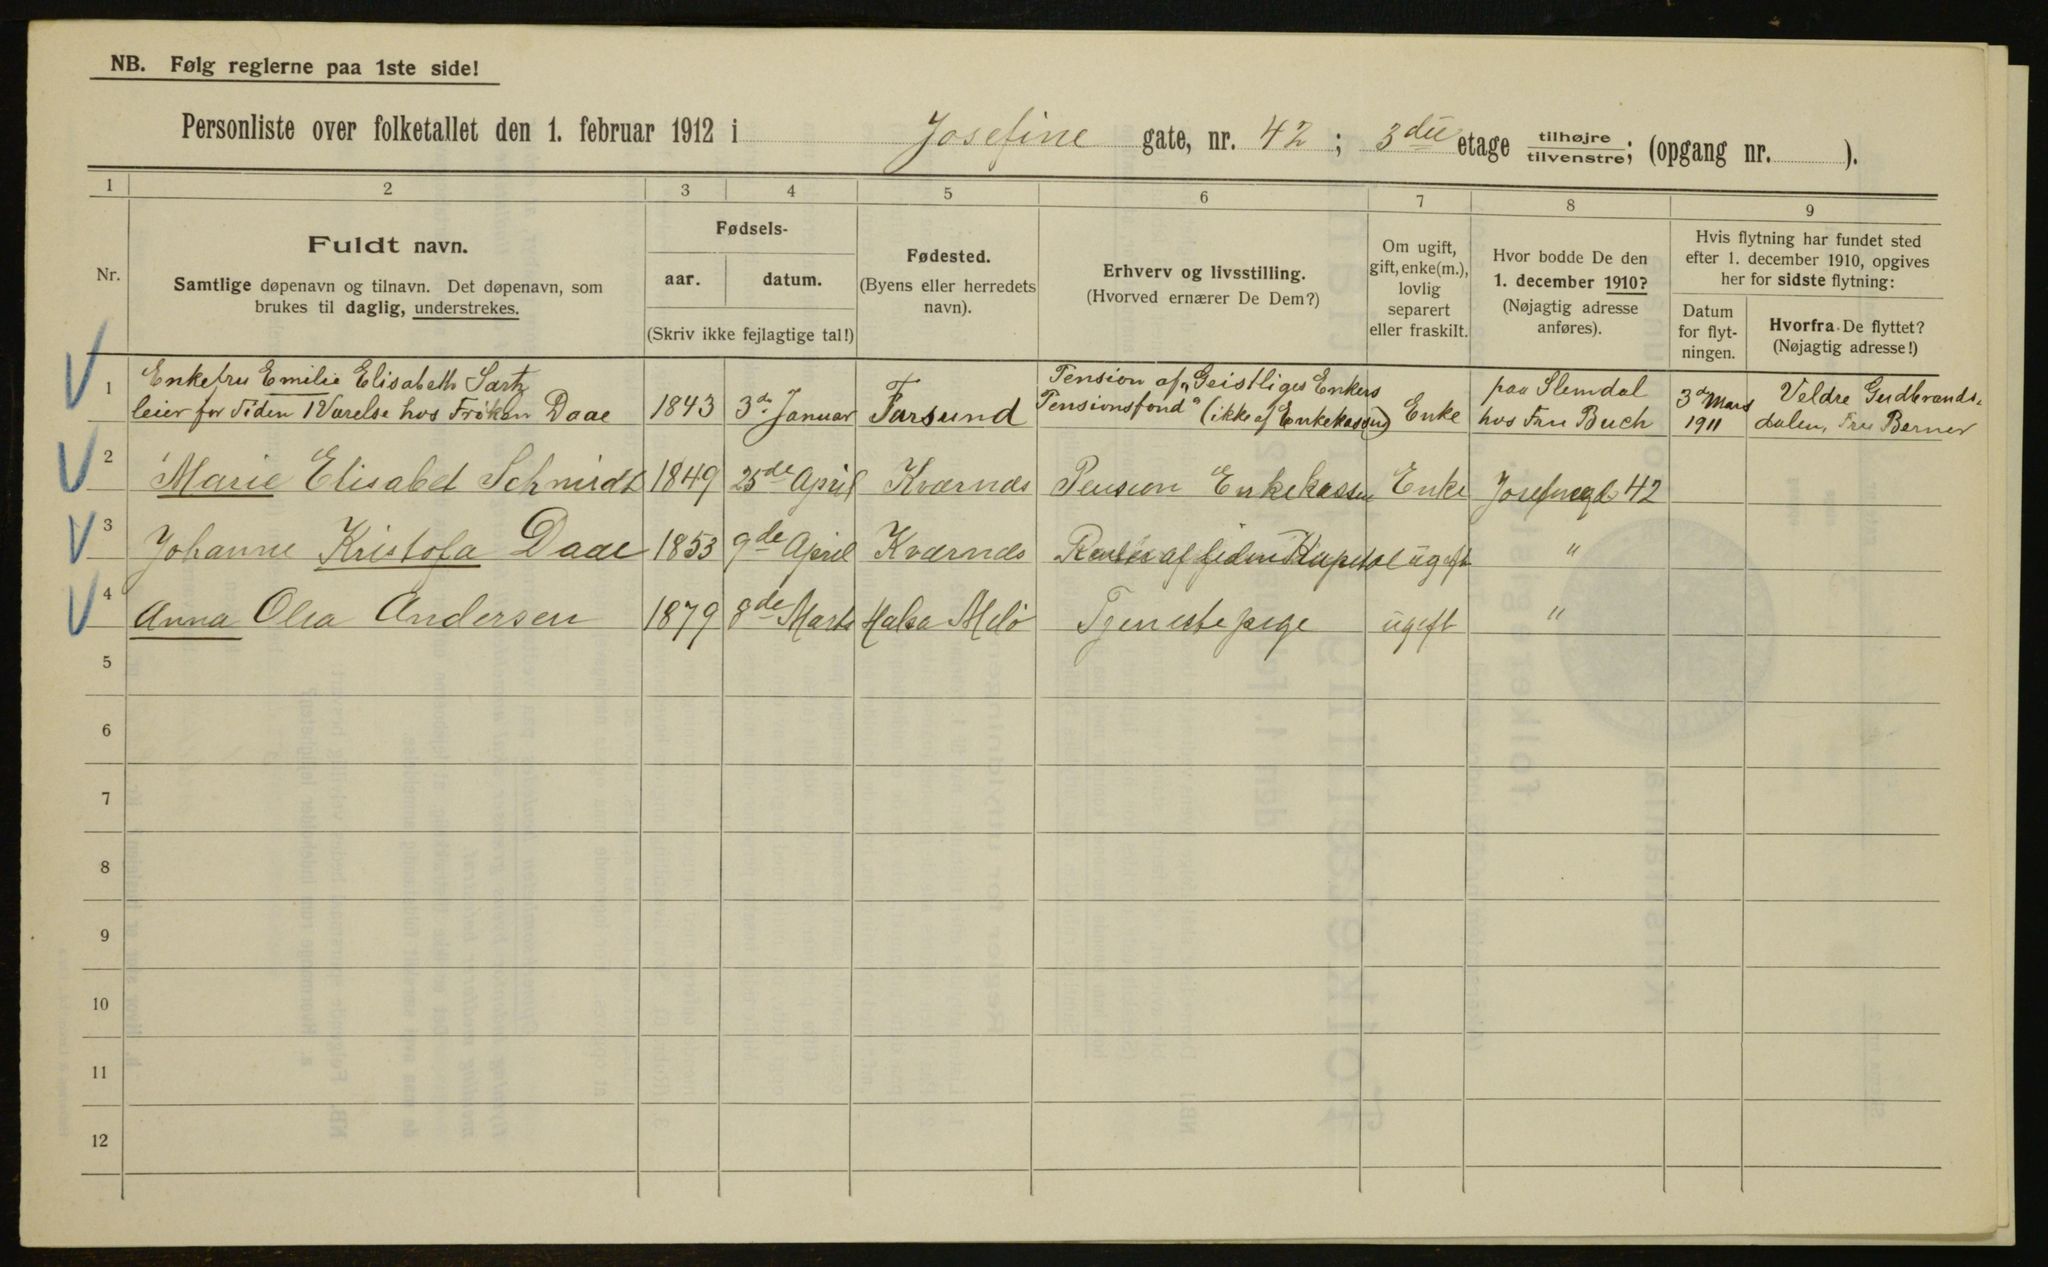 NB. Følg reglerne paa 1ste side!
Personliste over folketallet den 1. februar 1912 i Josefine gate, nr. 42 ; 3die etage tilhøjre/tilvenstre; (opgang nr. ).
1 2 3 4 5 6 7 8 9
Nr.
Fuldt navn.
Samtlige døpenavn og tilnavn. Det døpenavn, som
brukes til daglig, understrekes.
Fødsels-
aar. datum.
(Skriv ikke fejlagtige tal!)
Fødested.
(Byens eller herredets
navn).
Erhverv og livsstilling.
(Hvorved ernærer De Dem?)
Om ugift,
gift, enke(m.),
lovlig
separert
eller fraskilt.
Hvor bodde De den
1. december 1910?
(Nøjagtig adresse
anføres).
Hvis flytning har fundet sted
efter 1. december 1910, opgives
her for sidste flytning:
Datum
for flyt-
ningen.
Hvorfra De flyttet?
(Nøjagtig adresse!)
1 Enkefru Emilie Elisabeth
leier for Tiden 1 Værelse hos Frøken Daae 1843 3de Januar Farsund Pension af "Geistliges Enkers
Pensionsfond" (ikke af Enkekassen) Enke paa Slemdal
hos Fru Buch 3d Mars
1911 Veldre Gudbrands-
dalen, Fru Berner
2 Marie Elisabet Schmidt 1849 25de April Kværnes Pension Enkekassen Enke Josefinegd 42
3 Johanne Kristofa Daae 1853 9de April Kværnes Renter af liden Kapital ugift "
4 Anna Olea Andersen 1879 8de Marts Halsa Melø Tjenestepige ugift "
5
6
7
8
9
10
11
12